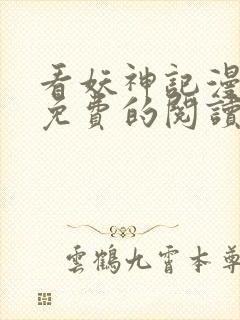 看妖神記漫
免費的閱讀
雲鶴九霄本尊